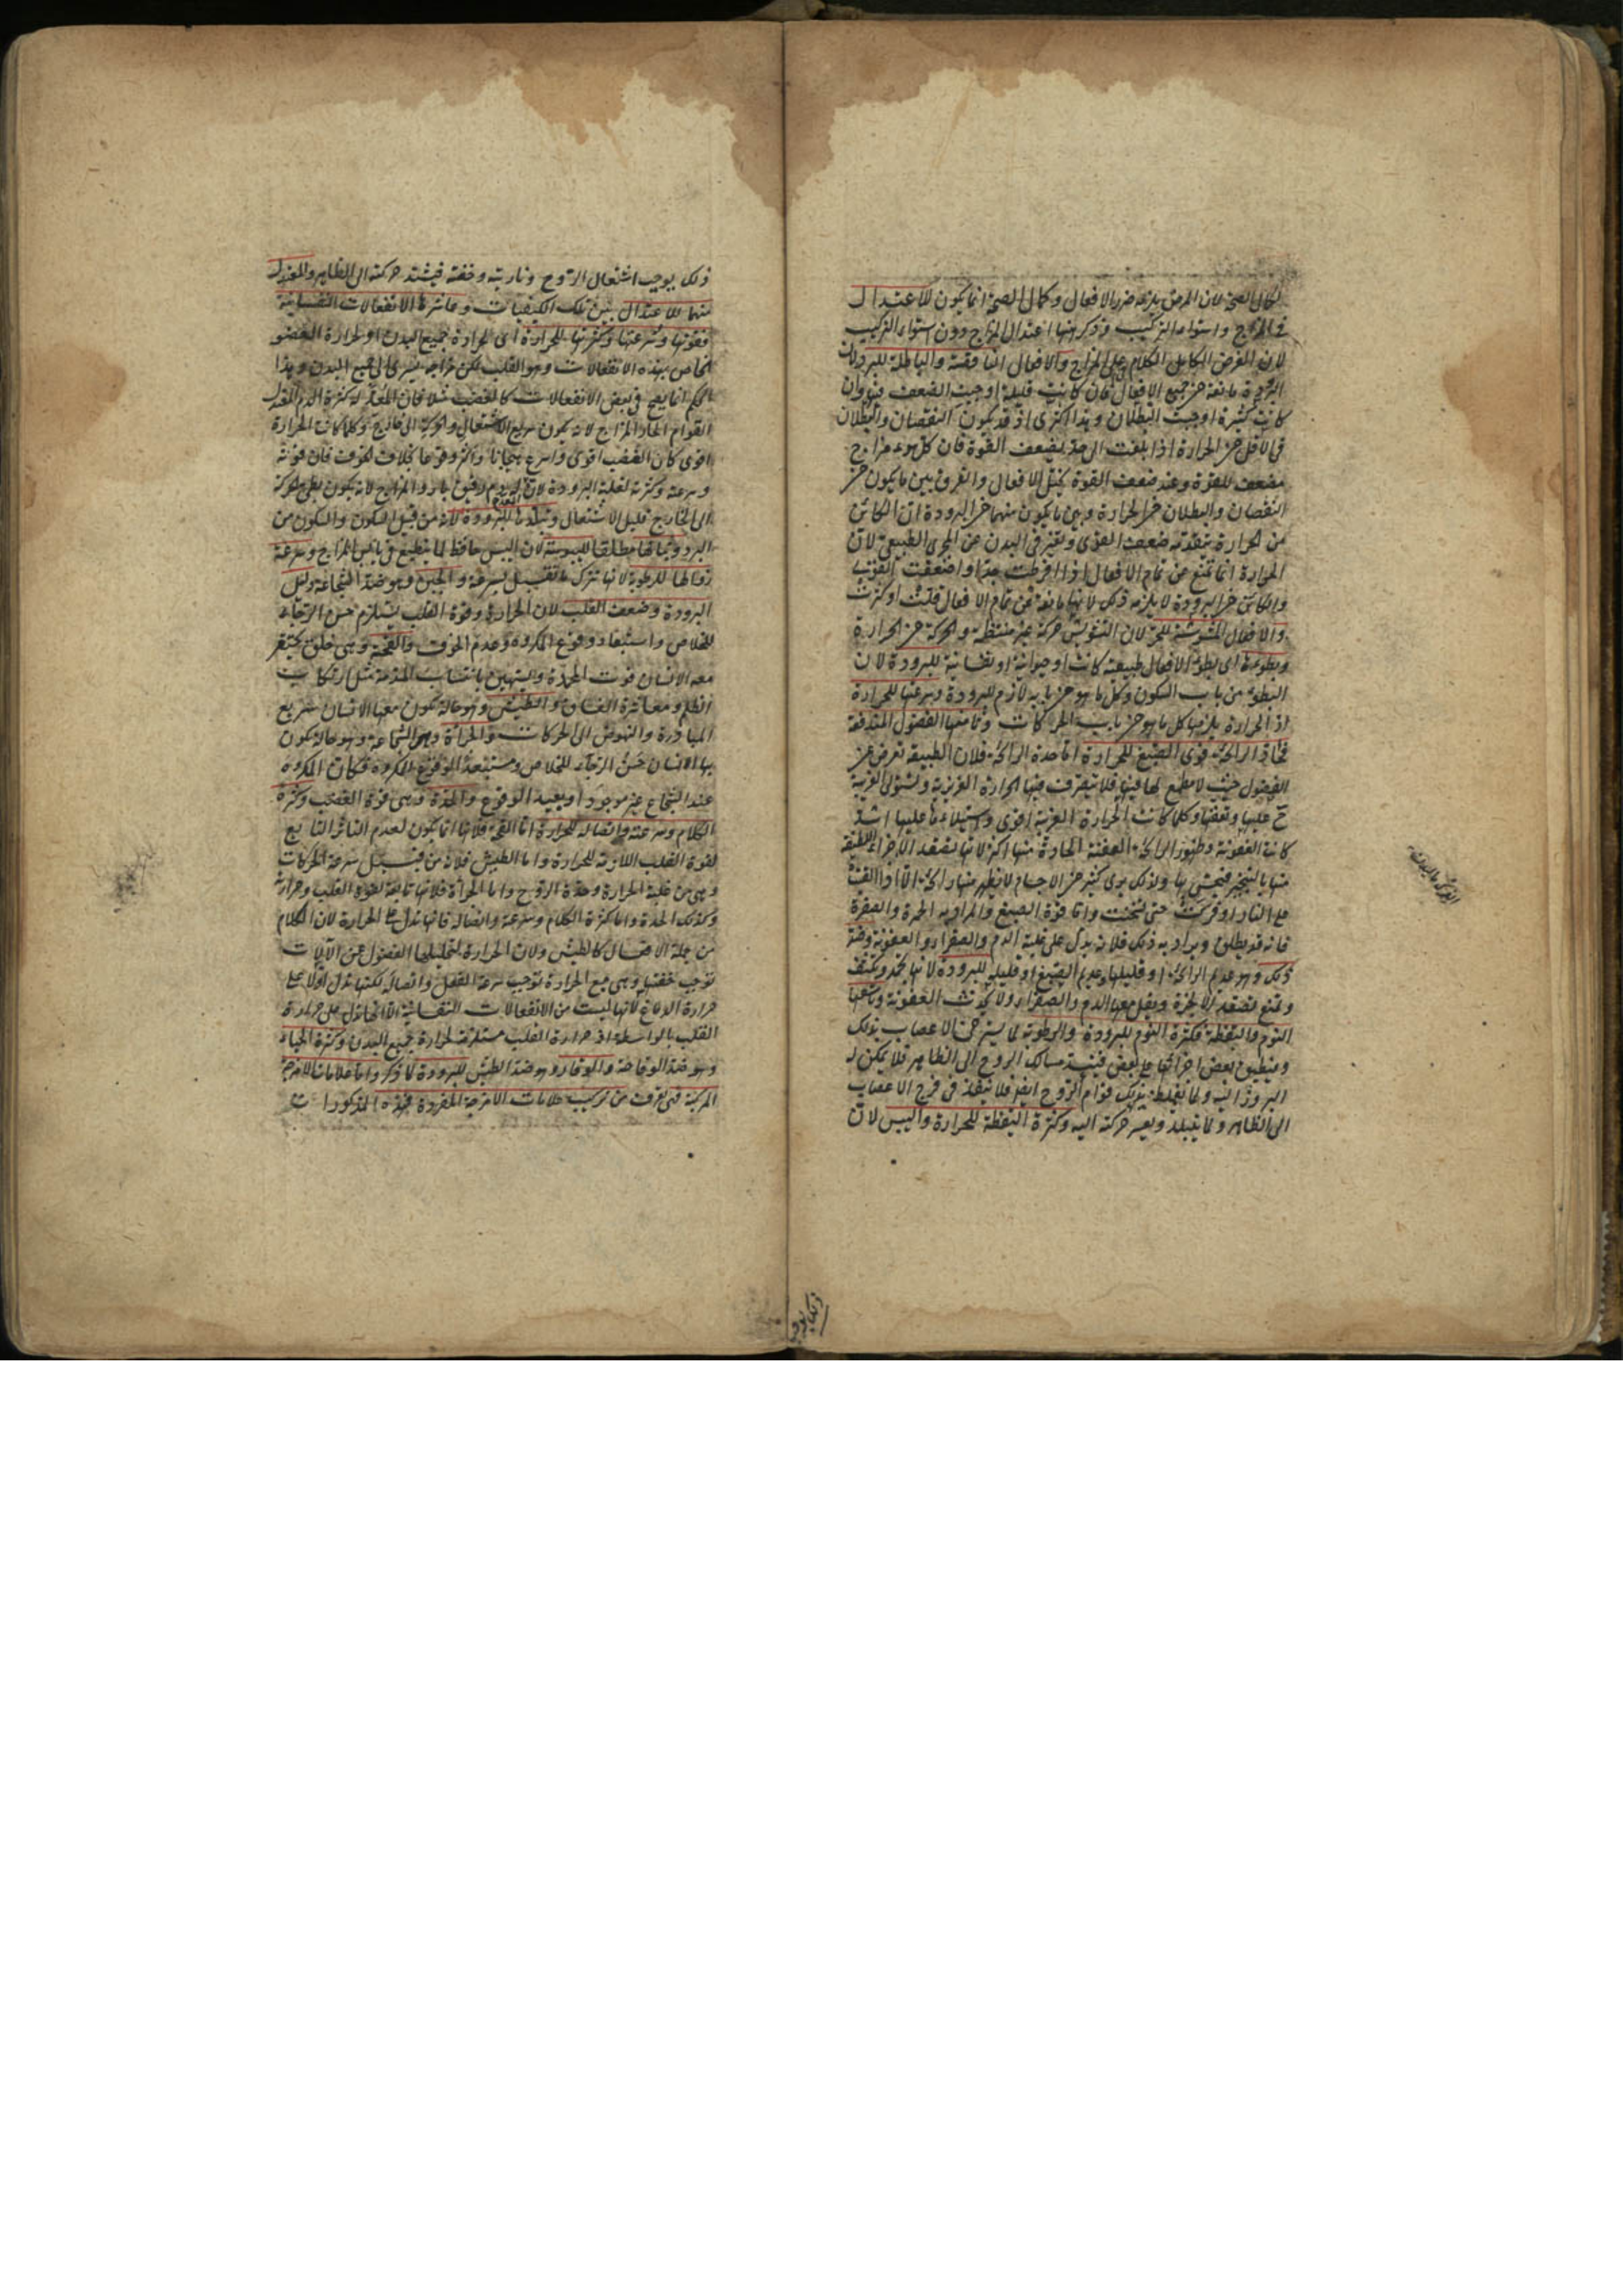 لكمال الصحة لان المرض يلزمه ضرر الافعال وكمال الصحة انما يكون للاعتدال
في المزاج واستواء التركيب وذكر ههنا اعتدال المزاج دون استواء التركيب
لان الغرض الكامل الكلام على المزاج والافعال الناقصة والباطلة للبرد لان
البرودة مانعة من جميع الافعال فان كانت قليلة اوجبت الضعف وان
كانت كثيرة اوجبت البطلان وهذا اكثرى اذ قد يكون النقصان والبطلان
في الاقل من الحرارة اذا بلغت الى حد يضعف القوة فان كل سوء مزاج
مضعف للقوة وعند ضعف القوة يختل الافعال والفرق بين ما يكون من
النقصان والبطلان من الحرارة وبين ما يكون منهما من البرودة ان الكائن
من الحرارة يتقدمه ضعف القوى وتغير في البدن عن المجرى الطبيعي لان
الحرارة انما تمنع عن تمام الافعال اذا افرطت جدا واضعفت القوى
والكائن من البرودة لا يلزمه ذلك لانها مانعة عن تمام الافعال قلت او كثرت
والافعال المشوشة للحر لان التشويش حركة غير منتظمة والحركة من الحرارة
وبطوءها اى بطوء الافعال طبيعية كانت او حيوانية او نفسانية للبرودة لان
البطوء من باب السكون وكل ما هو من بابه لازم للبرودة وسرعتها للحرارة
اذ الحرارة يلزمها كل ما هو من باب الحركات وتاسعها الفضول المندفعة
فحاد الرائحة قوى الصبغ للحرارة اما حدة الرائحة فلان الطبيعة تعرض عن
الفضول حيث لا مطمع لها فيها فلا يتصرف فيها الحرارة الغريزية وتستولى الغريبة
ح عليها وتعفنها وكلما كانت الحرارة الغريبة اقوى واستيلاءها عليها اشد
كانت العفونة وظهور الرائحة العفنة الحادة منها اكثر لانها يصعد الاجزاء اللطيفة
منها بالتبخير فيحس بها ولذلك يرى كثير من الاجسام لا يظهر منها رائحة الا اذا القيت
على النار او فركت حتى سخنت واما قوة الصبغ والمراد به الحمرة والصفرة
فانه قد يطلق ويراد به ذلك فلانه يدل على غلبة الدم والصفراء والعفونة وضد
ذلك وهو عديم الرائحة او قليلها وعديم الصبغ او قليله للبرودة لانها تجمد وتكثف
وتمنع تصعد الابخرة ويقل معها الدم والصفراء ولا يحدث العفونة وتاسعها
النوم واليقظة فكثرة النوم للبرودة والرطوبة لما يسترخى الاعصاب بذلك
وينطبق بعض اجزائها على بعض فينسد مسالك الروح الى الظاهر فلا يمكن له
البروز اليه ولما يغلظ بذلك قوام الروح ايضا فلا ينفذ في فرج الاعصاب
الى الظاهر ولما يتبلد ويعسر حركته اليه وكثرة اليقظة للحرارة واليبس لان
ذلك يوجب
ذلك يوجب اشتعال الروح وناريته وخفته فيشتد حركته الى الظاهر والمعتدل
منهما للاعتدال بين تلك الكيفيات وعاشرها الانفعالات النفسانية
فقوتها وسرعتها وكثرتها للحرارة اى لحرارة جميع البدن او لحرارة العضو
الخاص بهذه الانفعالات وهو القلب لكن مزاجه يسرى الى جميع البدن وهذا
الحكم انما يصح في بعض الانفعالات كالغضب مثلا فان المعد له كثرة الدم المعتدل
القوام الحار المزاج لانه يكون سريع الاشتعال والحركة الى خارج وكلما كانت الحرارة
اقوى كان الغضب اقوى واسرع هيجانا واكثر وقوعا بخلاف الخوف فان قوته
وسرعته وكثرته لغلبة البرودة لان المعد له دم رقيق بارد المزاج لانه يكون بطئ الحركة
الى الخارج قليل الاشتعال وتبلدها للبرودة لانه من قبيل السكون والسكون من
البرد وثباتها مطلقا لليبوسة لان اليبس حافظ لما ينطبع في يابس المزاج وسرعة
زوالها للرطوبة لانها تترك ما تقبل بسرعة والجبن وهو ضد الشجاعة دليل
البرودة وضعف القلب لان الحرارة وقوة القلب يستلزم حسن الرجاء
للخلاص واستبعاد وقوع المكروه وعدم الخوف والقحة وهى خلق يحتقر
معه الانسان فوت المحمدة ويستهين بانتساب المذمة مثل ارتكاب
الظلم ومعاشرة الفساق والطيش وهو حالة يكون معها الانسان سريع
المبادرة والنهوض الى الحركات والجرأة وهى الشجاعة وهو حالة يكون
بها الانسان حسن الرجاء للخلاص ومستبعدا لوقوع المكروه فكان المكروه
عند الشجاع غير موجود او بعيد الوقوع والحدة وهى قوة الغضب وكثرة
الكلام وسرعته واتصاله للحرارة اما القحة فلانها انما يكون لعدم التاثر التابع
لقوة القلب اللازمة للحرارة واما الطيش فلانه من قبيل سرعة الحركات
وهى من غلبة الحرارة وحدة الروح واما الجرأة فلانها تابعة لقوة القلب وحرارته
وكذلك الحدة واما كثرة الكلام وسرعته واتصاله فانها تدل على الحرارة لان الكلام
من جملة الافعال كالطيش ولان الحرارة لتحليلها الفضول عن الآلات
توجب خفتها وهى مع الحرارة توجب سرعة الفعل واتصاله لكنها تدل اولا على
حرارة الدماغ لانها ليست من الانفعالات النفسانية الا انها تدل على حرارة
القلب بالواسطة اذ حرارة القلب مستلزمة لحرارة جميع البدن وكثرة الحياء
وهو ضد الوقاحة والوقار وهو ضد الطيش للبرودة لما ذكر واما علامات الامزجة
المركبة فهى تعرف من تركيب علامات الامزجة المفردة فهذه المذكورات